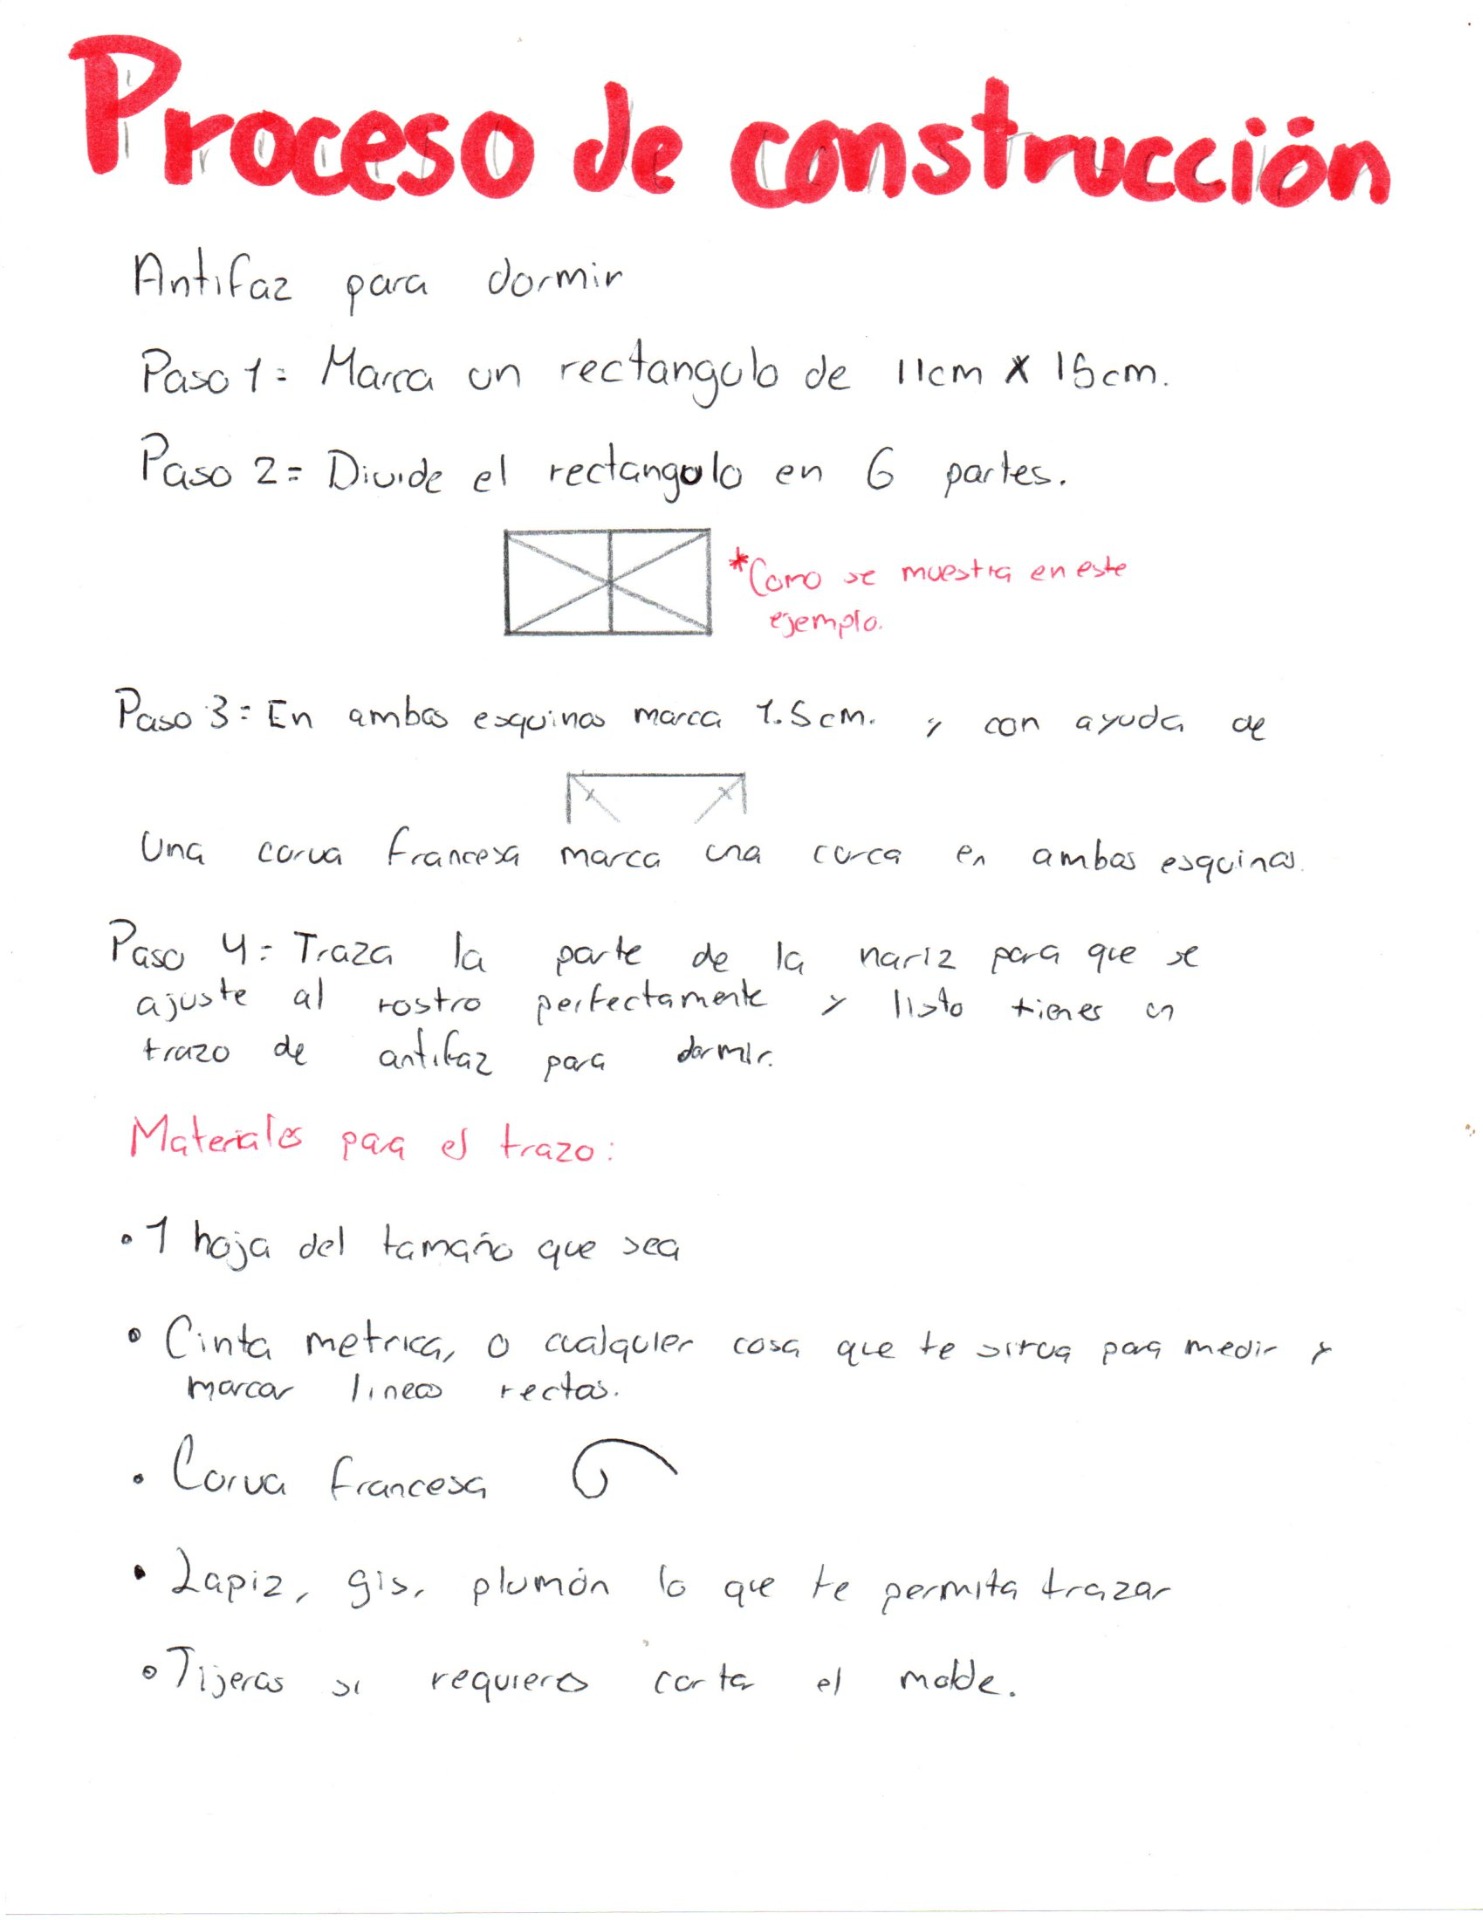 Proceso de construcción
Antifaz para dormir
Paso 1= Marca un rectangulo de 11cm x 15cm.
Paso 2= Divide el rectangulo en 6 partes.
*Como se muestra en este
ejemplo.
Paso 3= En ambas esquinas marca 1.5cm. y con ayuda de
Una curva francesa marca una curca en ambas esquinas.
Paso 4= Traza la parte de la nariz para que se
ajuste al rostro perfectamente y listo tienes un
trazo de antifaz para dormir.
Materiales para el trazo:
• 1 hoja del tamaño que sea
• Cinta metrica, o cualquier cosa que te sirva para medir y
marcar lineas rectas.
• Curva francesa
• Lapiz, gis, plumón lo que te permita trazar
• Tijeras si requieres cortar el molde.